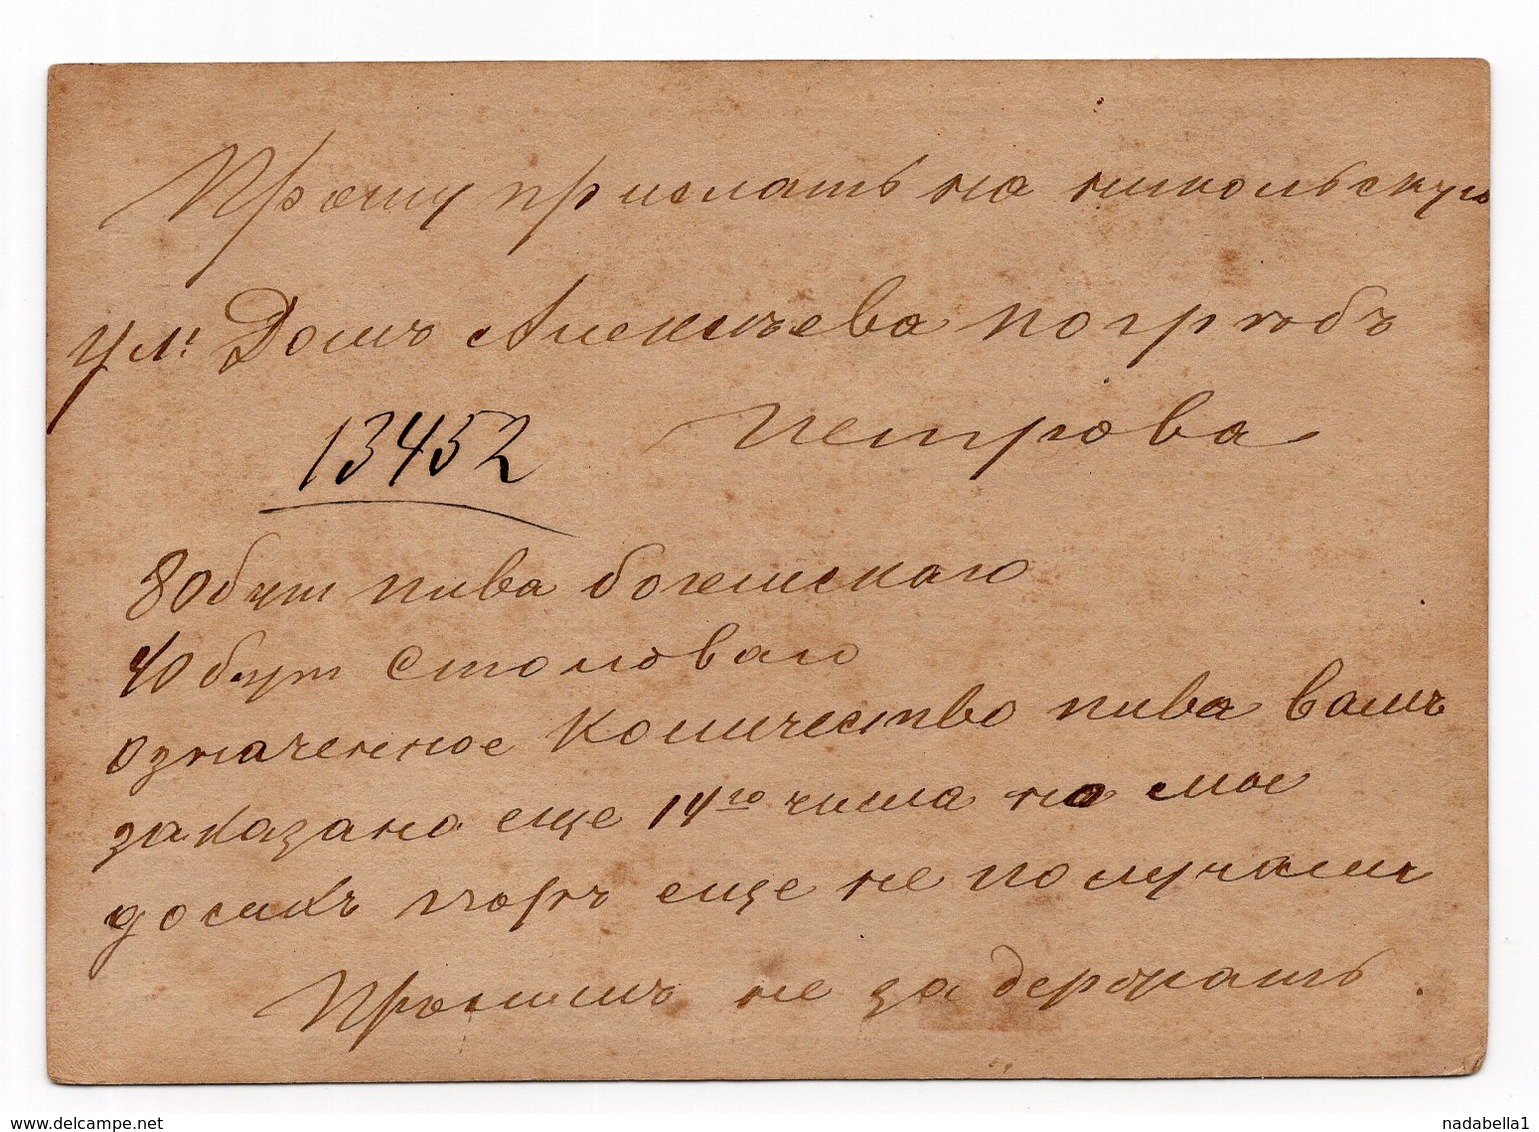 Прошу прислать на никольскую
ул: Домъ Алексичева погрѣбъ
13452 Петрова
80 бут пива богемскаго
40 бут столоваго
означенное количество пива вамъ
заказано еще 14го числа но мы
досихъ поръ еще не получали
Просимъ не задержать.
www.delcampe.net
nadabella1